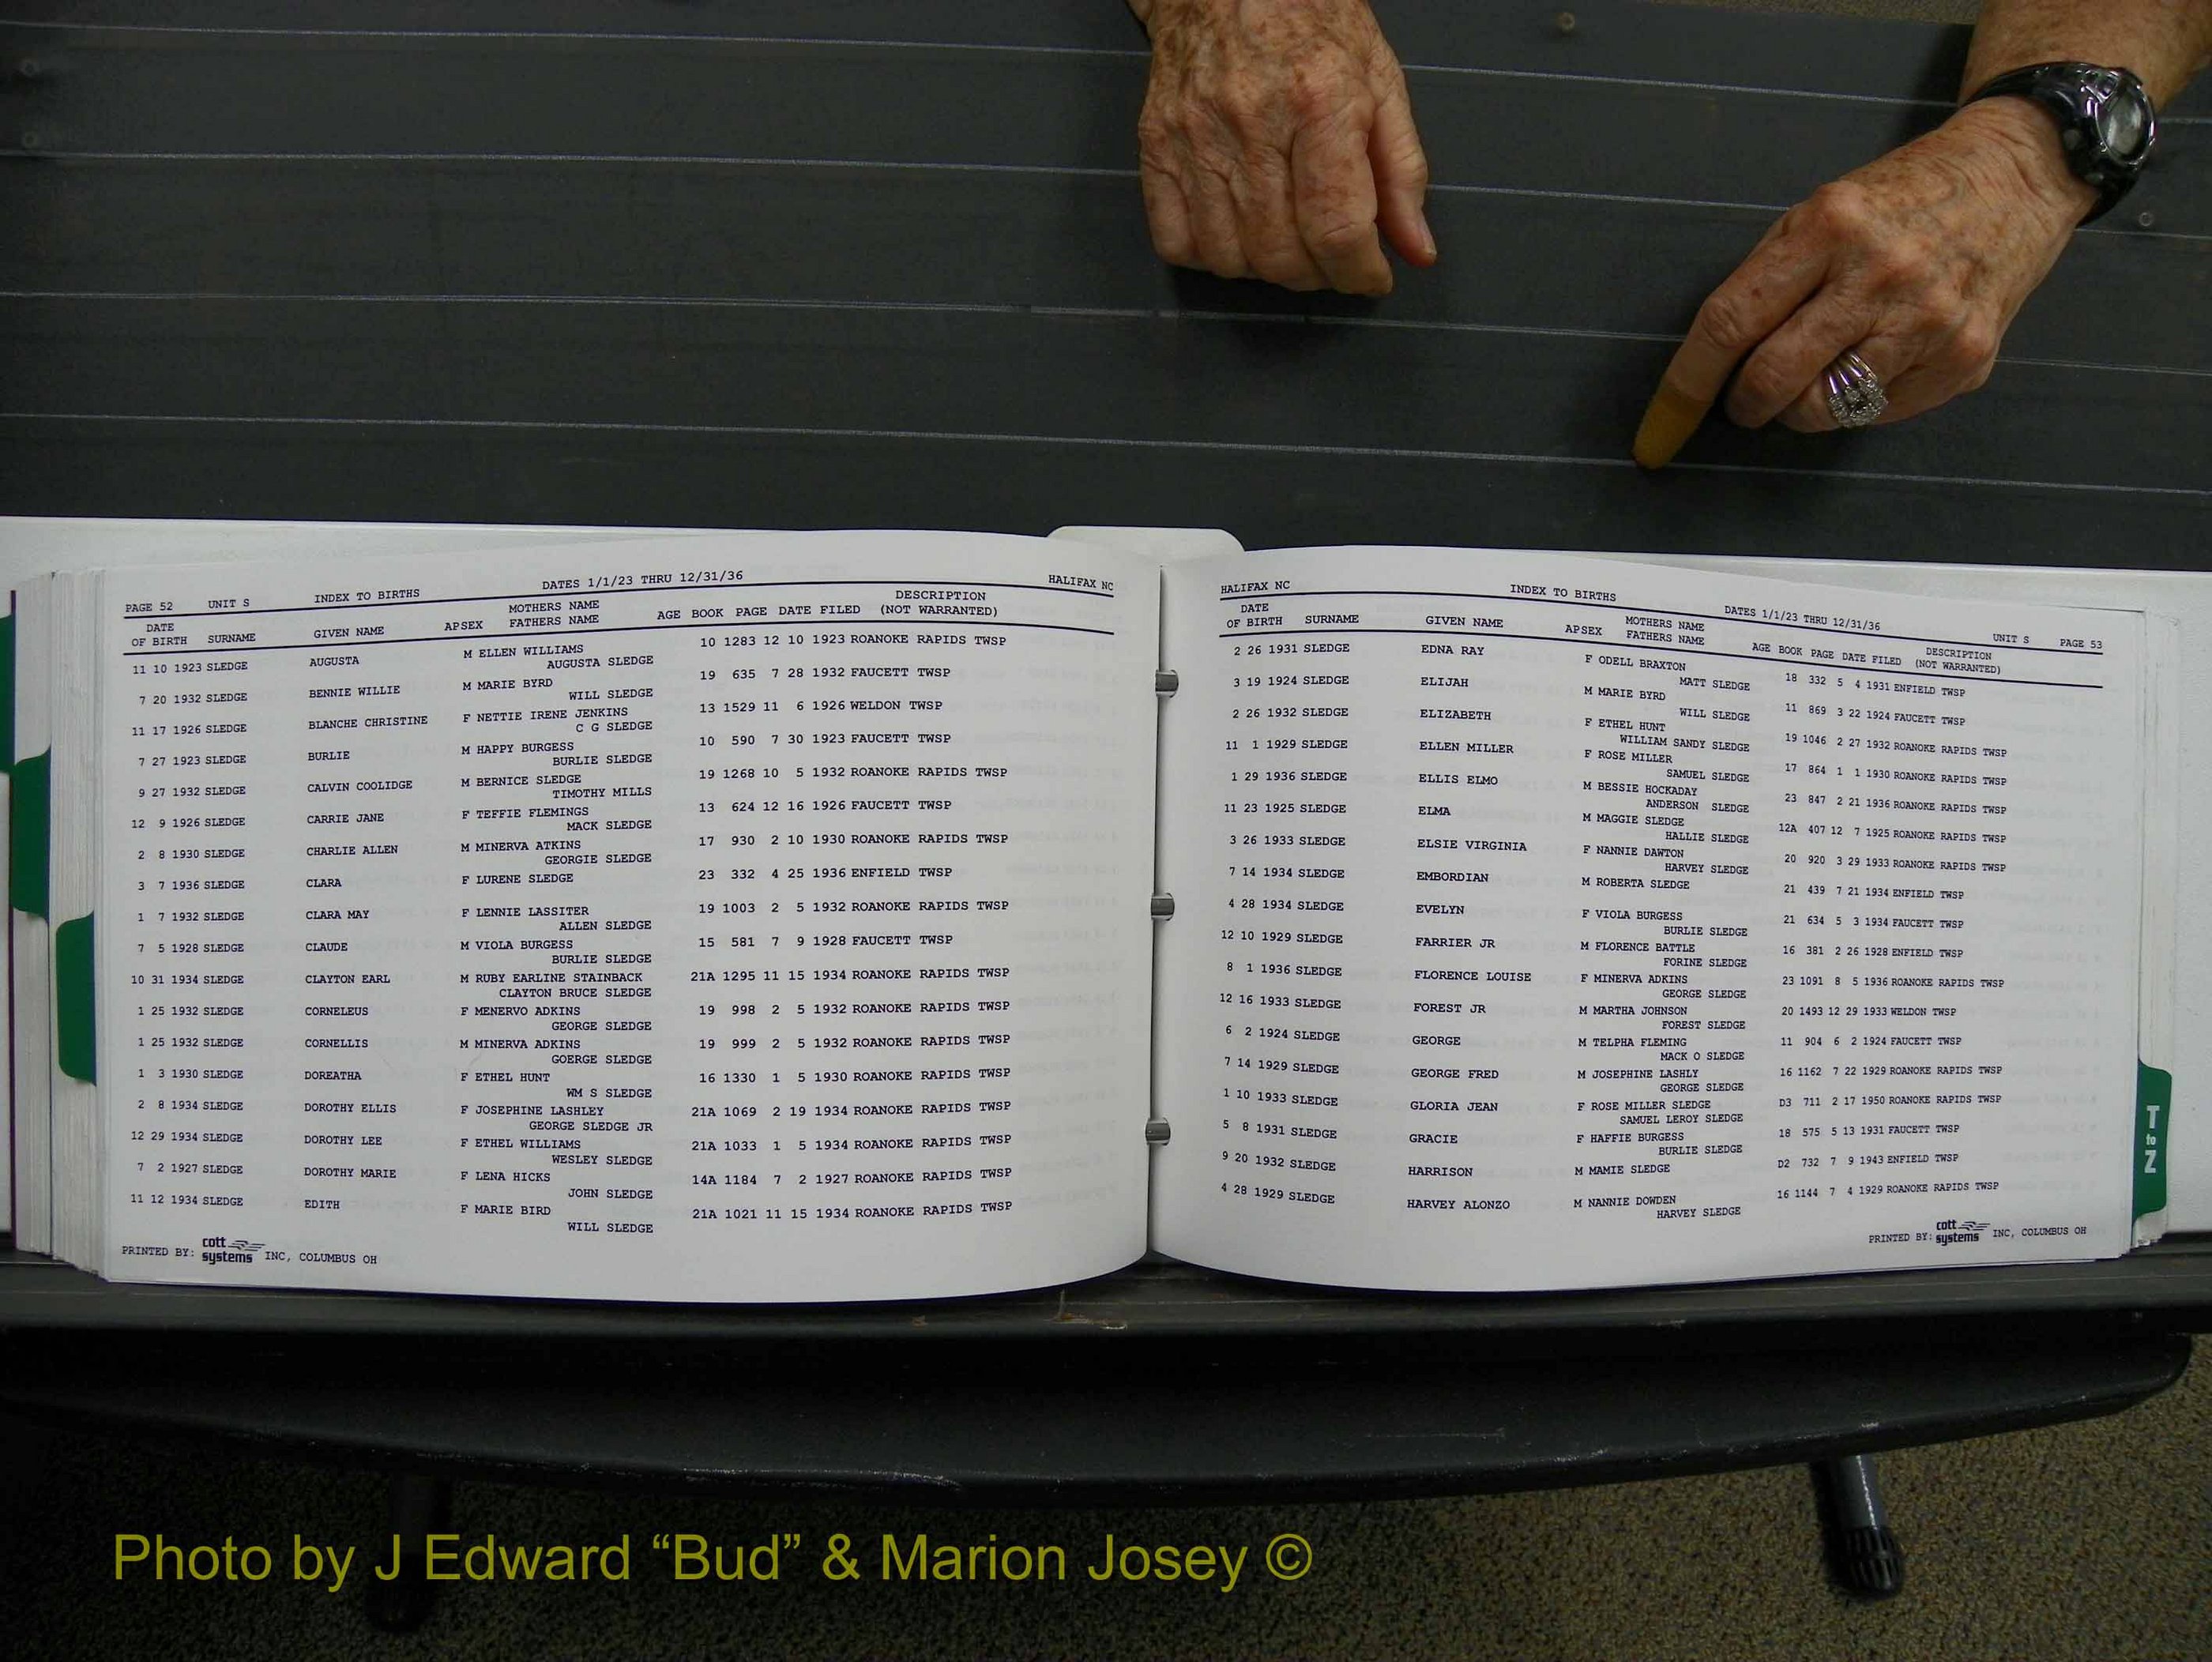 PAGE 52 UNIT S INDEX TO BIRTHS DATES 1/1/23 THRU 12/31/36 HALIFAX NC
DATE MOTHERS NAME DESCRIPTION
OF BIRTH SURNAME GIVEN NAME APSEX FATHERS NAME AGE BOOK PAGE DATE FILED (NOT WARRANTED)
11 10 1923 SLEDGE AUGUSTA M ELLEN WILLIAMS 10 1283 12 10 1923 ROANOKE RAPIDS TWSP
AUGUSTA SLEDGE
7 20 1932 SLEDGE BENNIE WILLIE M MARIE BYRD 19 635 7 28 1932 FAUCETT TWSP
WILL SLEDGE
11 17 1926 SLEDGE BLANCHE CHRISTINE F NETTIE IRENE JENKINS 13 1529 11 6 1926 WELDON TWSP
C G SLEDGE
7 27 1923 SLEDGE BURLIE M HAPPY BURGESS 10 590 7 30 1923 FAUCETT TWSP
BURLIE SLEDGE
9 27 1932 SLEDGE CALVIN COOLIDGE M BERNICE SLEDGE 19 1268 10 5 1932 ROANOKE RAPIDS TWSP
TIMOTHY MILLS
12 9 1926 SLEDGE CARRIE JANE F TEFFIE FLEMINGS 13 624 12 16 1926 FAUCETT TWSP
MACK SLEDGE
2 8 1930 SLEDGE CHARLIE ALLEN M MINERVA ATKINS 17 930 2 10 1930 ROANOKE RAPIDS TWSP
GEORGIE SLEDGE
3 7 1936 SLEDGE CLARA F LURENE SLEDGE 23 332 4 25 1936 ENFIELD TWSP
1 7 1932 SLEDGE CLARA MAY F LENNIE LASSITER 19 1003 2 5 1932 ROANOKE RAPIDS TWSP
ALLEN SLEDGE
7 5 1928 SLEDGE CLAUDE M VIOLA BURGESS 15 581 7 9 1928 FAUCETT TWSP
BURLIE SLEDGE
10 31 1934 SLEDGE CLAYTON EARL M RUBY EARLINE STAINBACK 21A 1295 11 15 1934 ROANOKE RAPIDS TWSP
CLAYTON BRUCE SLEDGE
1 25 1932 SLEDGE CORNELEUS F MENERVO ADKINS 19 998 2 5 1932 ROANOKE RAPIDS TWSP
GEORGE SLEDGE
1 25 1932 SLEDGE CORNELLIS M MINERVA ADKINS 19 999 2 5 1932 ROANOKE RAPIDS TWSP
GOERGE SLEDGE
1 3 1930 SLEDGE DOREATHA F ETHEL HUNT 16 1330 1 5 1930 ROANOKE RAPIDS TWSP
WM S SLEDGE
2 8 1934 SLEDGE DOROTHY ELLIS F JOSEPHINE LASHLEY 21A 1069 2 19 1934 ROANOKE RAPIDS TWSP
GEORGE SLEDGE JR
12 29 1934 SLEDGE DOROTHY LEE F ETHEL WILLIAMS 21A 1033 1 5 1934 ROANOKE RAPIDS TWSP
WESLEY SLEDGE
7 2 1927 SLEDGE DOROTHY MARIE F LENA HICKS 14A 1184 7 2 1927 ROANOKE RAPIDS TWSP
JOHN SLEDGE
11 12 1934 SLEDGE EDITH F MARIE BIRD 21A 1021 11 15 1934 ROANOKE RAPIDS TWSP
WILL SLEDGE
PRINTED BY: cott systems INC, COLUMBUS OH
HALIFAX NC INDEX TO BIRTHS DATES 1/1/23 THRU 12/31/36 UNIT S PAGE 53
DATE MOTHERS NAME DESCRIPTION
OF BIRTH SURNAME GIVEN NAME APSEX FATHERS NAME AGE BOOK PAGE DATE FILED (NOT WARRANTED)
2 26 1931 SLEDGE EDNA RAY F ODELL BRAXTON 18 332 5 4 1931 ENFIELD TWSP
MATT SLEDGE
3 19 1924 SLEDGE ELIJAH M MARIE BYRD 11 869 3 22 1924 FAUCETT TWSP
WILL SLEDGE
2 26 1932 SLEDGE ELIZABETH F ETHEL HUNT 19 1046 2 27 1932 ROANOKE RAPIDS TWSP
WILLIAM SANDY SLEDGE
11 1 1929 SLEDGE ELLEN MILLER F ROSE MILLER 17 864 1 1 1930 ROANOKE RAPIDS TWSP
SAMUEL SLEDGE
1 29 1936 SLEDGE ELLIS ELMO M BESSIE HOCKADAY 23 847 2 21 1936 ROANOKE RAPIDS TWSP
ANDERSON SLEDGE
11 23 1925 SLEDGE ELMA M MAGGIE SLEDGE 12A 407 12 7 1925 ROANOKE RAPIDS TWSP
HALLIE SLEDGE
3 26 1933 SLEDGE ELSIE VIRGINIA F NANNIE DAWTON 20 920 3 29 1933 ROANOKE RAPIDS TWSP
HARVEY SLEDGE
7 14 1934 SLEDGE EMBORDIAN M ROBERTA SLEDGE 21 439 7 21 1934 ENFIELD TWSP
4 28 1934 SLEDGE EVELYN F VIOLA BURGESS 21 634 5 3 1934 FAUCETT TWSP
BURLIE SLEDGE
12 10 1929 SLEDGE FARRIER JR M FLORENCE BATTLE 16 381 2 26 1928 ENFIELD TWSP
FORINE SLEDGE
8 1 1936 SLEDGE FLORENCE LOUISE F MINERVA ADKINS 23 1091 8 5 1936 ROANOKE RAPIDS TWSP
GEORGE SLEDGE
12 16 1933 SLEDGE FOREST JR M MARTHA JOHNSON 20 1493 12 29 1933 WELDON TWSP
FOREST SLEDGE
6 2 1924 SLEDGE GEORGE M TELPHA FLEMING 11 904 6 2 1924 FAUCETT TWSP
MACK O SLEDGE
7 14 1929 SLEDGE GEORGE FRED M JOSEPHINE LASHLY 16 1162 7 22 1929 ROANOKE RAPIDS TWSP
GEORGE SLEDGE
1 10 1933 SLEDGE GLORIA JEAN F ROSE MILLER SLEDGE D3 711 2 17 1950 ROANOKE RAPIDS TWSP
SAMUEL LEROY SLEDGE
5 8 1931 SLEDGE GRACIE F HAFFIE BURGESS 18 575 5 13 1931 FAUCETT TWSP
BURLIE SLEDGE
9 20 1932 SLEDGE HARRISON M MAMIE SLEDGE D2 732 7 9 1943 ENFIELD TWSP
4 28 1929 SLEDGE HARVEY ALONZO M NANNIE DOWDEN 16 1144 7 4 1929 ROANOKE RAPIDS TWSP
HARVEY SLEDGE
PRINTED BY: cott systems INC, COLUMBUS OH
T to Z
Photo by J Edward “Bud” & Marion Josey ©